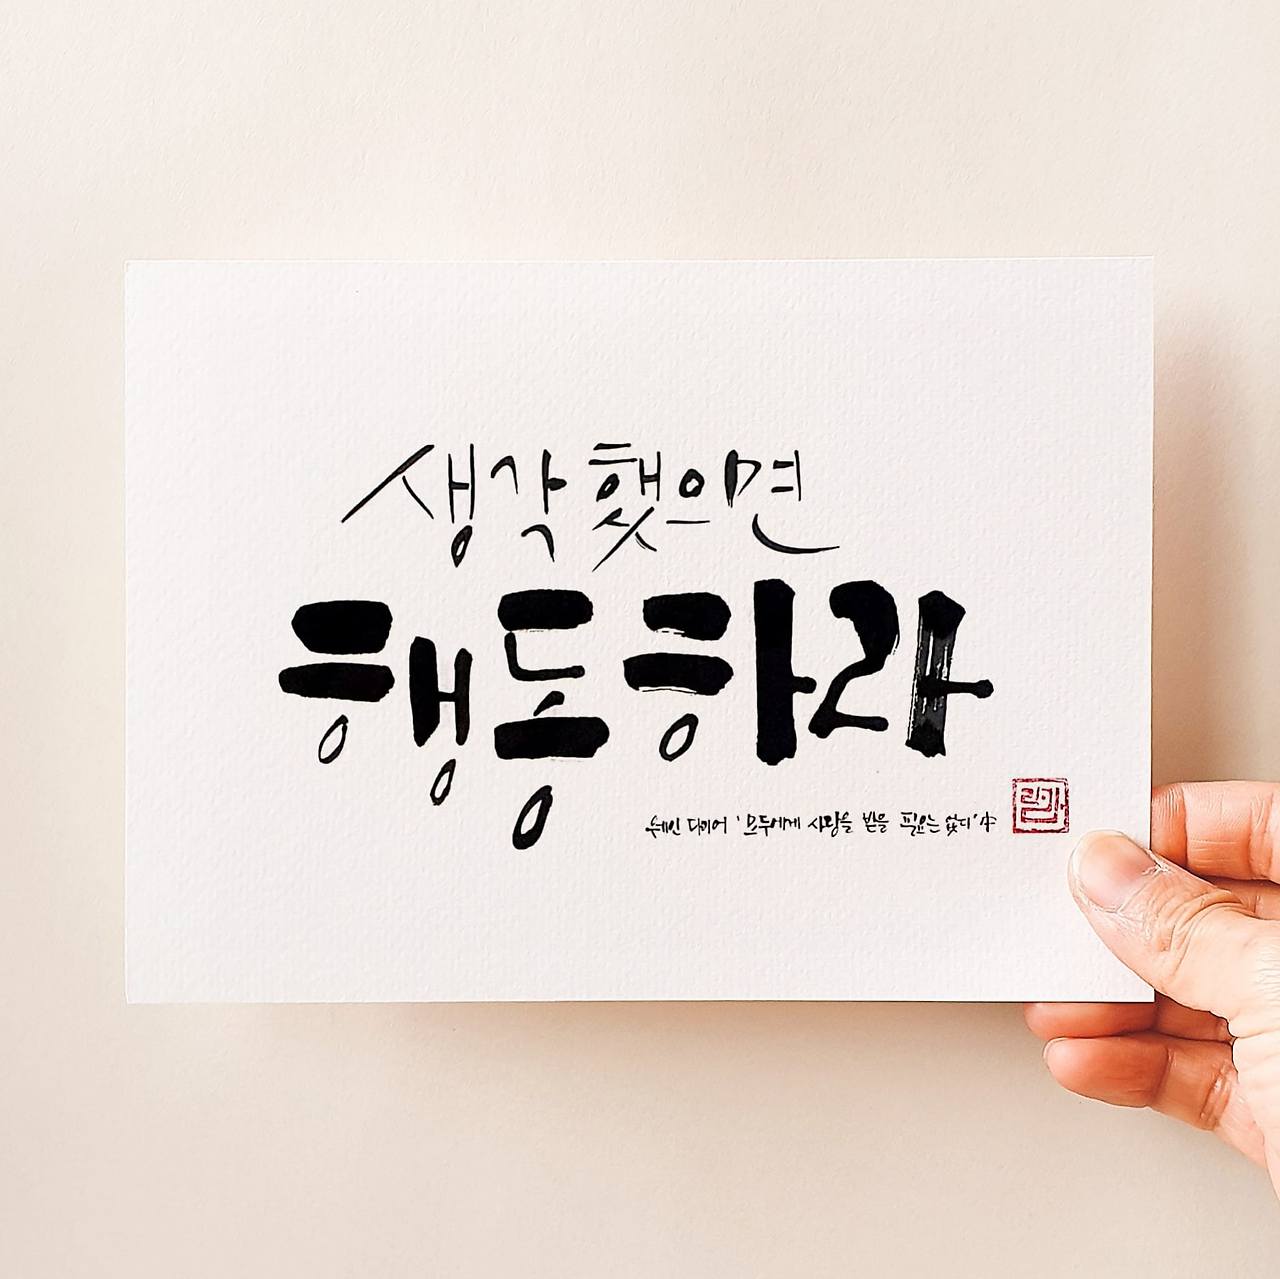 생각했으면
행동하라
웨인 다이어 '모두에게 사랑을 받을 필요는 없다' 中